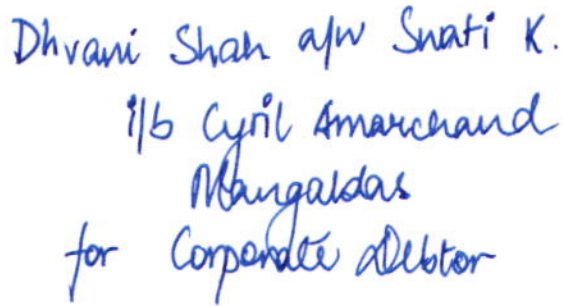 Dhvani Shah a/w Swati K.
i/b Cyril Amarchand
Mangaldas
for Corporate Debtor